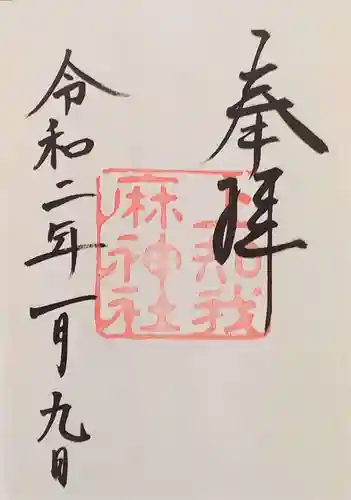 奉拝
上知我
麻神社
令和二年一月九日